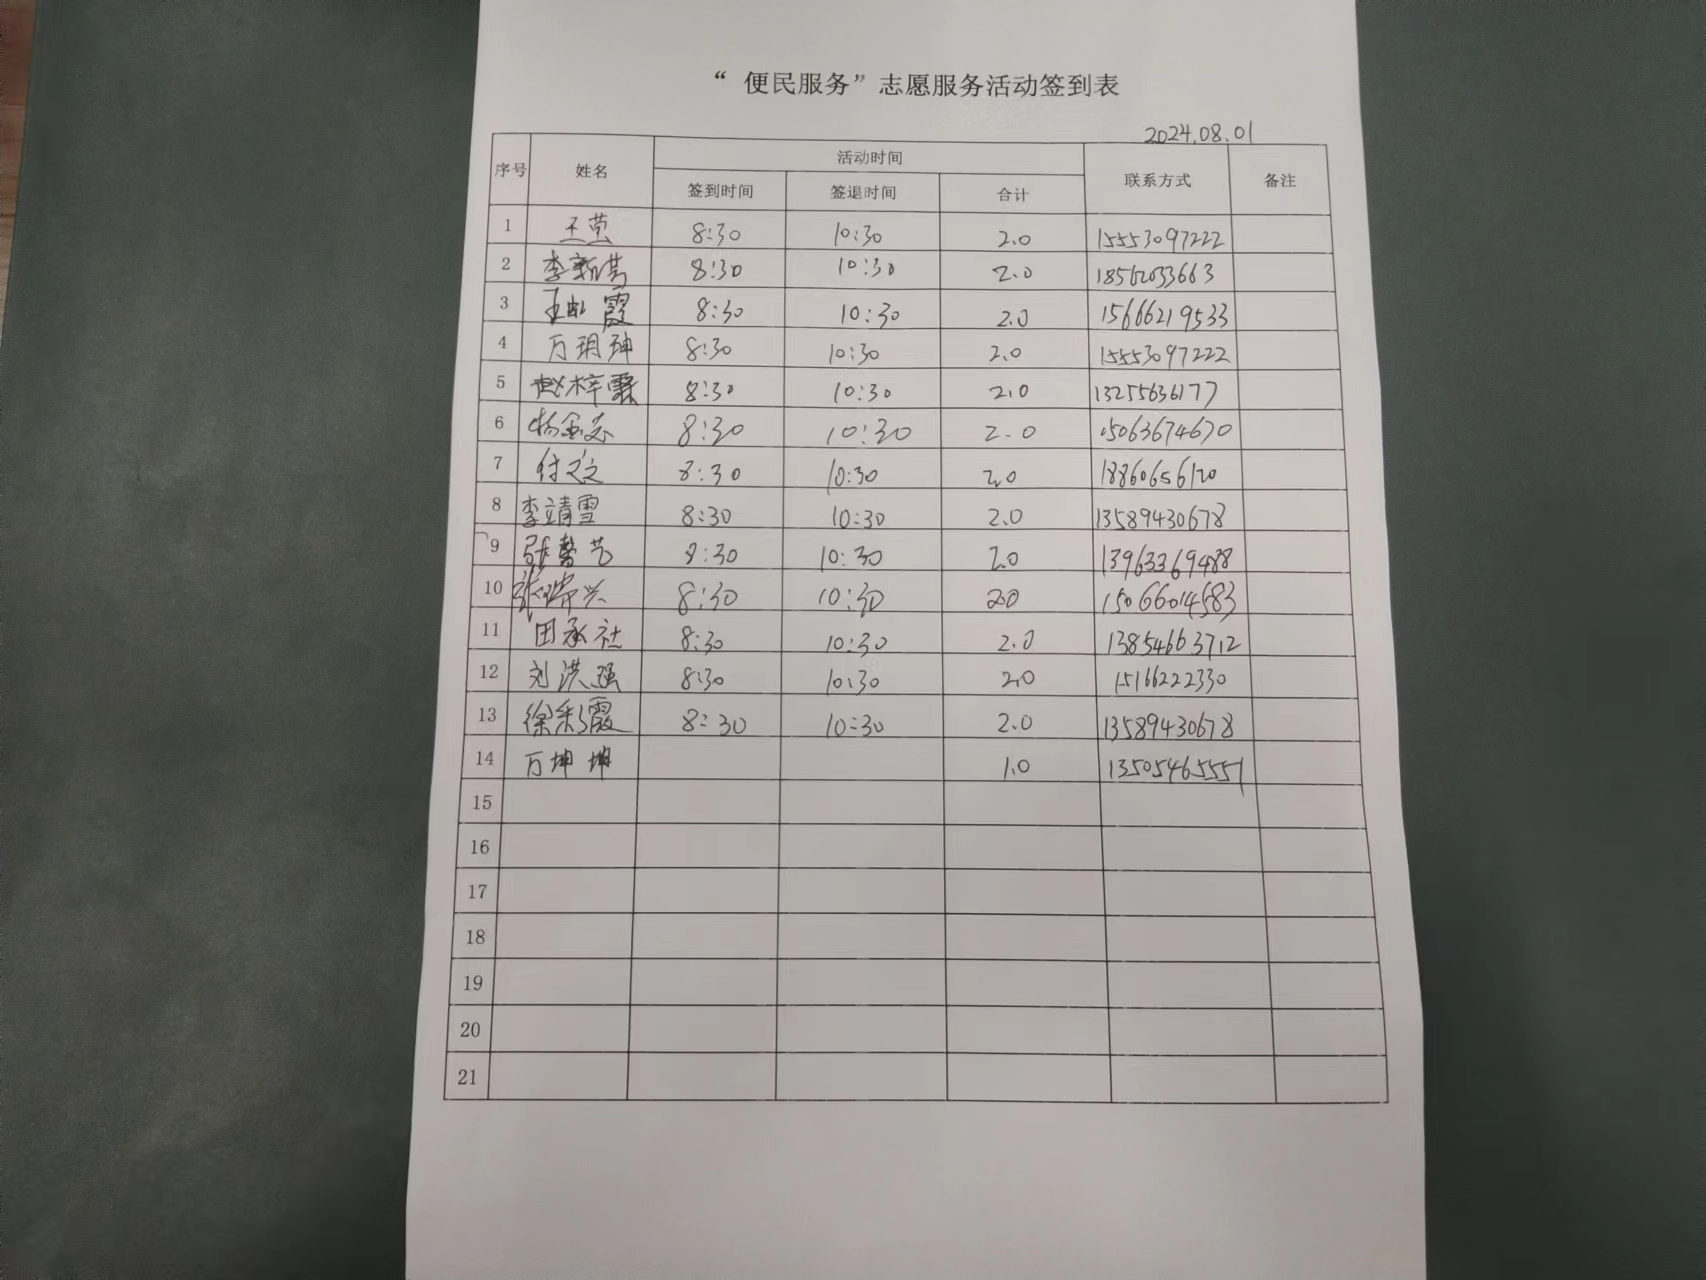 “ 便民服务”志愿服务活动签到表
2024.08.01
序号 姓名 活动时间 联系方式 备注
签到时间 签退时间 合计
1 王萤 8:30 10:30 2.0 15553097222
2 李新 8:30 10:30 2.0 18562033663
3 王虹霞 8:30 10:30 2.0 15666219533
4 万玥珅 8:30 10:30 2.0 15553097222
5 赵梓霖 8:30 10:30 2.0 13255636177
6 杨金志 8:30 10:30 2.0 15063674670
7 付文文 8:30 10:30 2.0 18860656120
8 李靖雪 8:30 10:30 2.0 13589430678
9 张馨艺 8:30 10:30 2.0 13963369488
10 张瑞兴 8:30 10:30 2.0 15066014583
11 田承社 8:30 10:30 2.0 13854663712
12 刘洪强 8:30 10:30 2.0 15166222330
13 徐彩霞 8:30 10:30 2.0 13589430678
14 万坤坤 1.0 13505465551
15
16
17
18
19
20
21